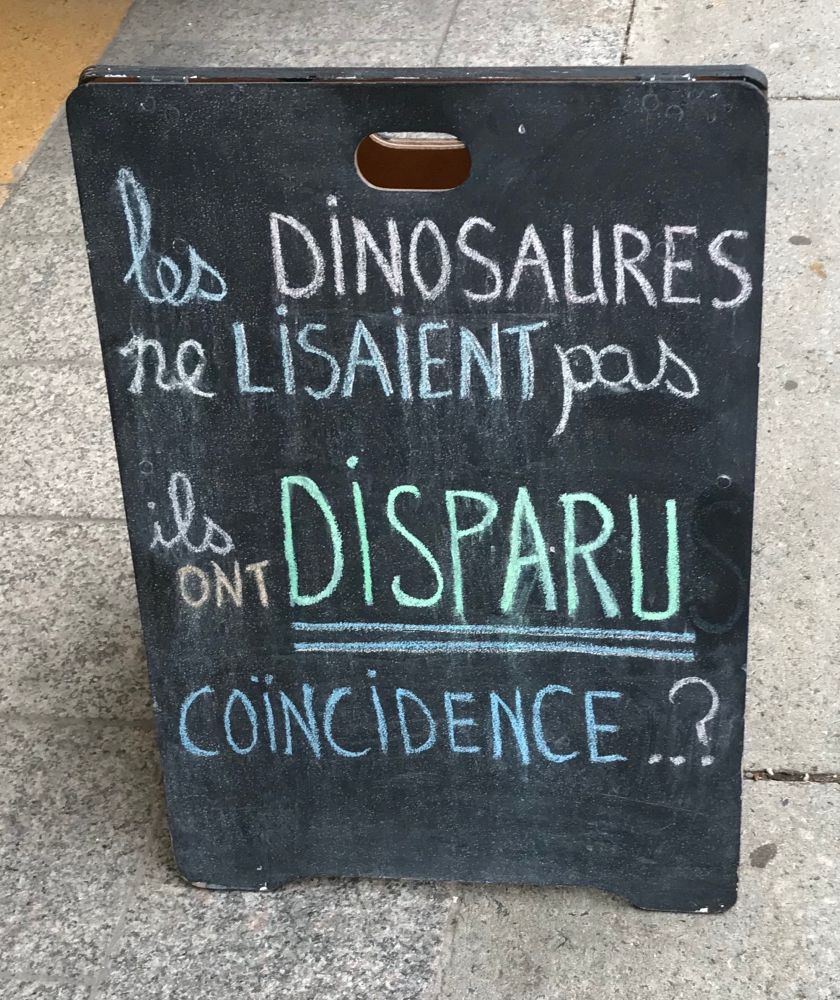 les DINOSAURES
ne LISAIENT pas
ils ONT DISPARU
COÏNCIDENCE ..?